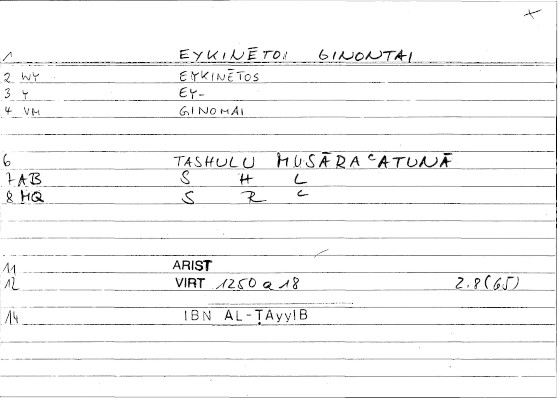 1 EYKINĒTOI GINONTAI
2 WY EYKINĒTOS
3 Y EY-
4 VM GINOMAI
6 TASHULU MUSĀRAᶜATUNĀ
7 AB S H L
8 MQ S R ᶜ
11 ARIST
12 VIRT 1250 a 18 2.8(65)
14 IBN AL-ṬAyyIB